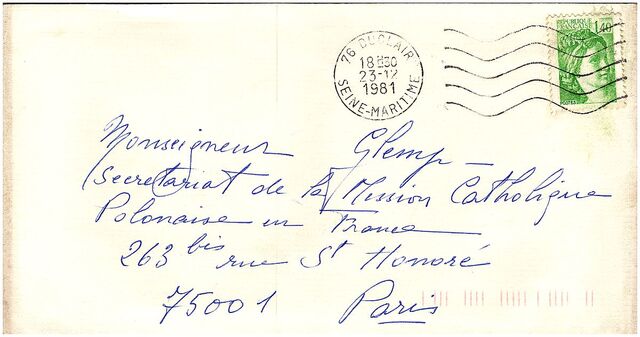 76 DUCLAIR
18H30
23-12
1981
SEINE-MARITIME
REPUBLIQUE FRANÇAISE
1,40
POSTES
Monseigneur Glemp -
Secretariat de la Mission Catholique
Polonaise en France
263 bis rue St Honoré
75001 Paris